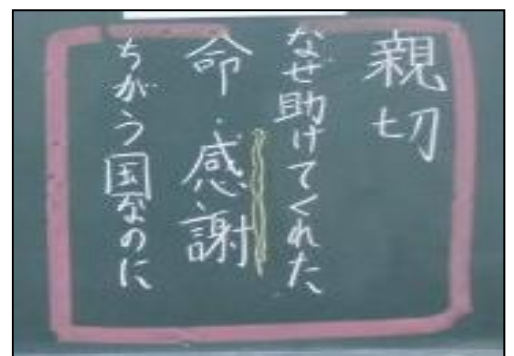 親切
なぜ助けてくれた
命・感謝
ちがう国なのに